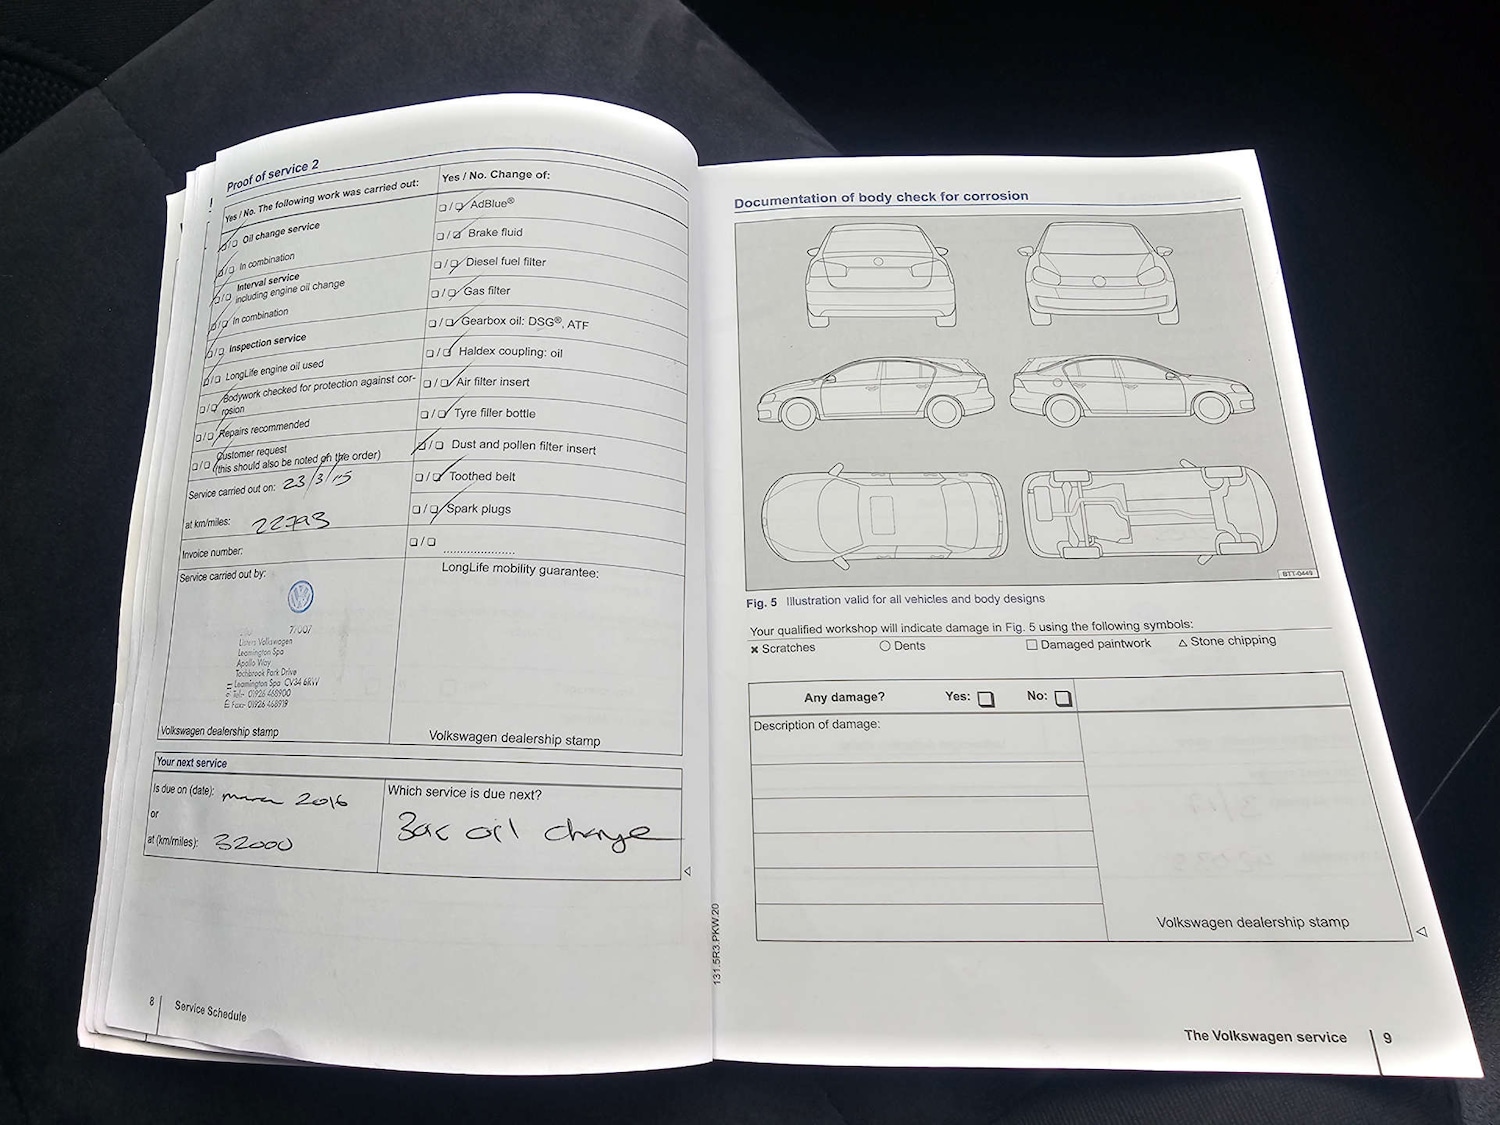 Proof of service 2
Yes / No. The following work was carried out:
❏ / ❏ Oil change service
❏ / ❏ In combination
❏ / ❏ Interval service
including engine oil change
❏ / ❏ In combination
❏ / ❏ Inspection service
❏ / ❏ LongLife engine oil used
❏ / ❏ Bodywork checked for protection against cor-
rosion
❏ / ❏ Repairs recommended
❏ / ❏ Customer request
(this should also be noted on the order)
Service carried out on: 23/3/15
at km/miles: 22793
Invoice number:
Service carried out by:
77007
Listers Volkswagen
Leamington Spa
Apollo Way
Tachbrook Park Drive
Leamington Spa CV34 6RW
Tel:- 01926 468900
Fax:- 01926 468919
Volkswagen dealership stamp
Yes / No. Change of:
❏ / ❏ AdBlue®
❏ / ❏ Brake fluid
❏ / ❏ Diesel fuel filter
❏ / ❏ Gas filter
❏ / ❏ Gearbox oil: DSG®, ATF
❏ / ❏ Haldex coupling: oil
❏ / ❏ Air filter insert
❏ / ❏ Tyre filler bottle
❏ / ❏ Dust and pollen filter insert
❏ / ❏ Toothed belt
❏ / ❏ Spark plugs
❏ / ❏ .....................
LongLife mobility guarantee:
Volkswagen dealership stamp
Your next service
Is due on (date): 2016
or
at (km/miles): 32000
Which service is due next?
oil change
8 Service Schedule
131.5R3.PKW.20
Documentation of body check for corrosion
BTT-0449
Fig. 5 Illustration valid for all vehicles and body designs
Your qualified workshop will indicate damage in Fig. 5 using the following symbols:
✖ Scratches ○ Dents □ Damaged paintwork △ Stone chipping
Any damage? Yes: ❏ No: ❏
Description of damage:
Volkswagen dealership stamp
The Volkswagen service 9